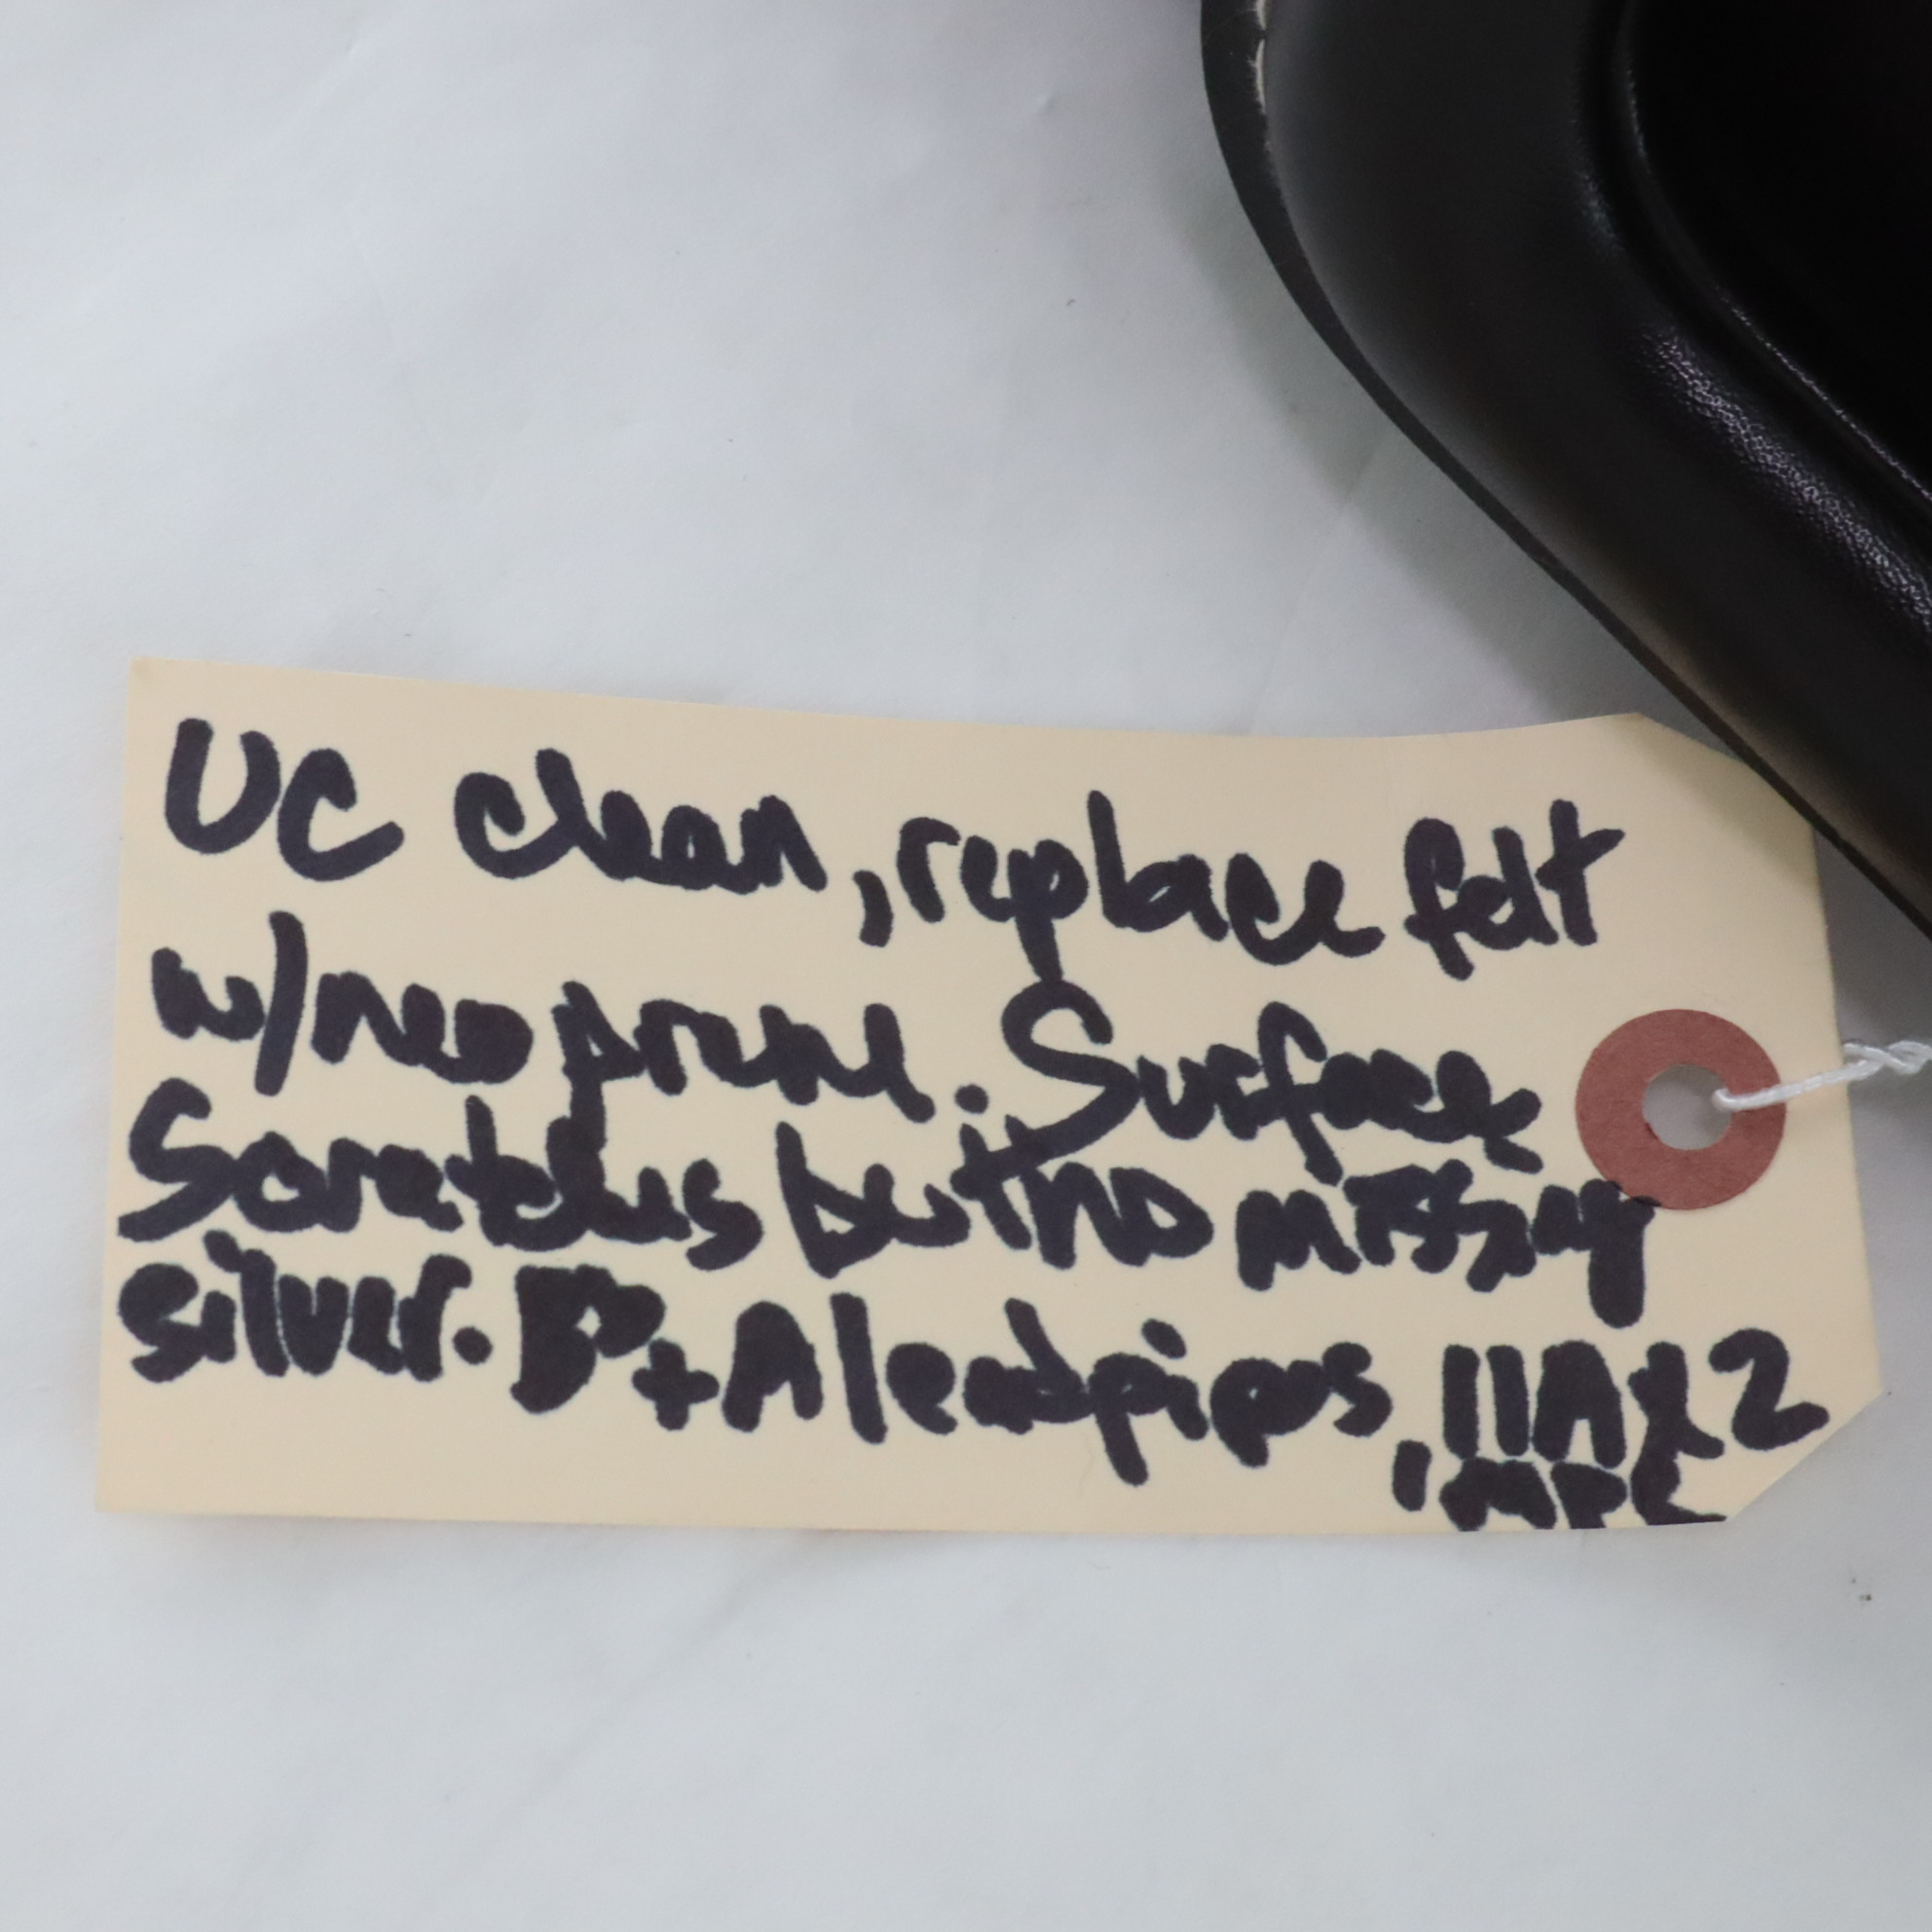 UC clean, replace felt
w/neoprene. Surface
Scratches but no missing
silver. B♭ + A leadpipes, 11Ax2
, MPC